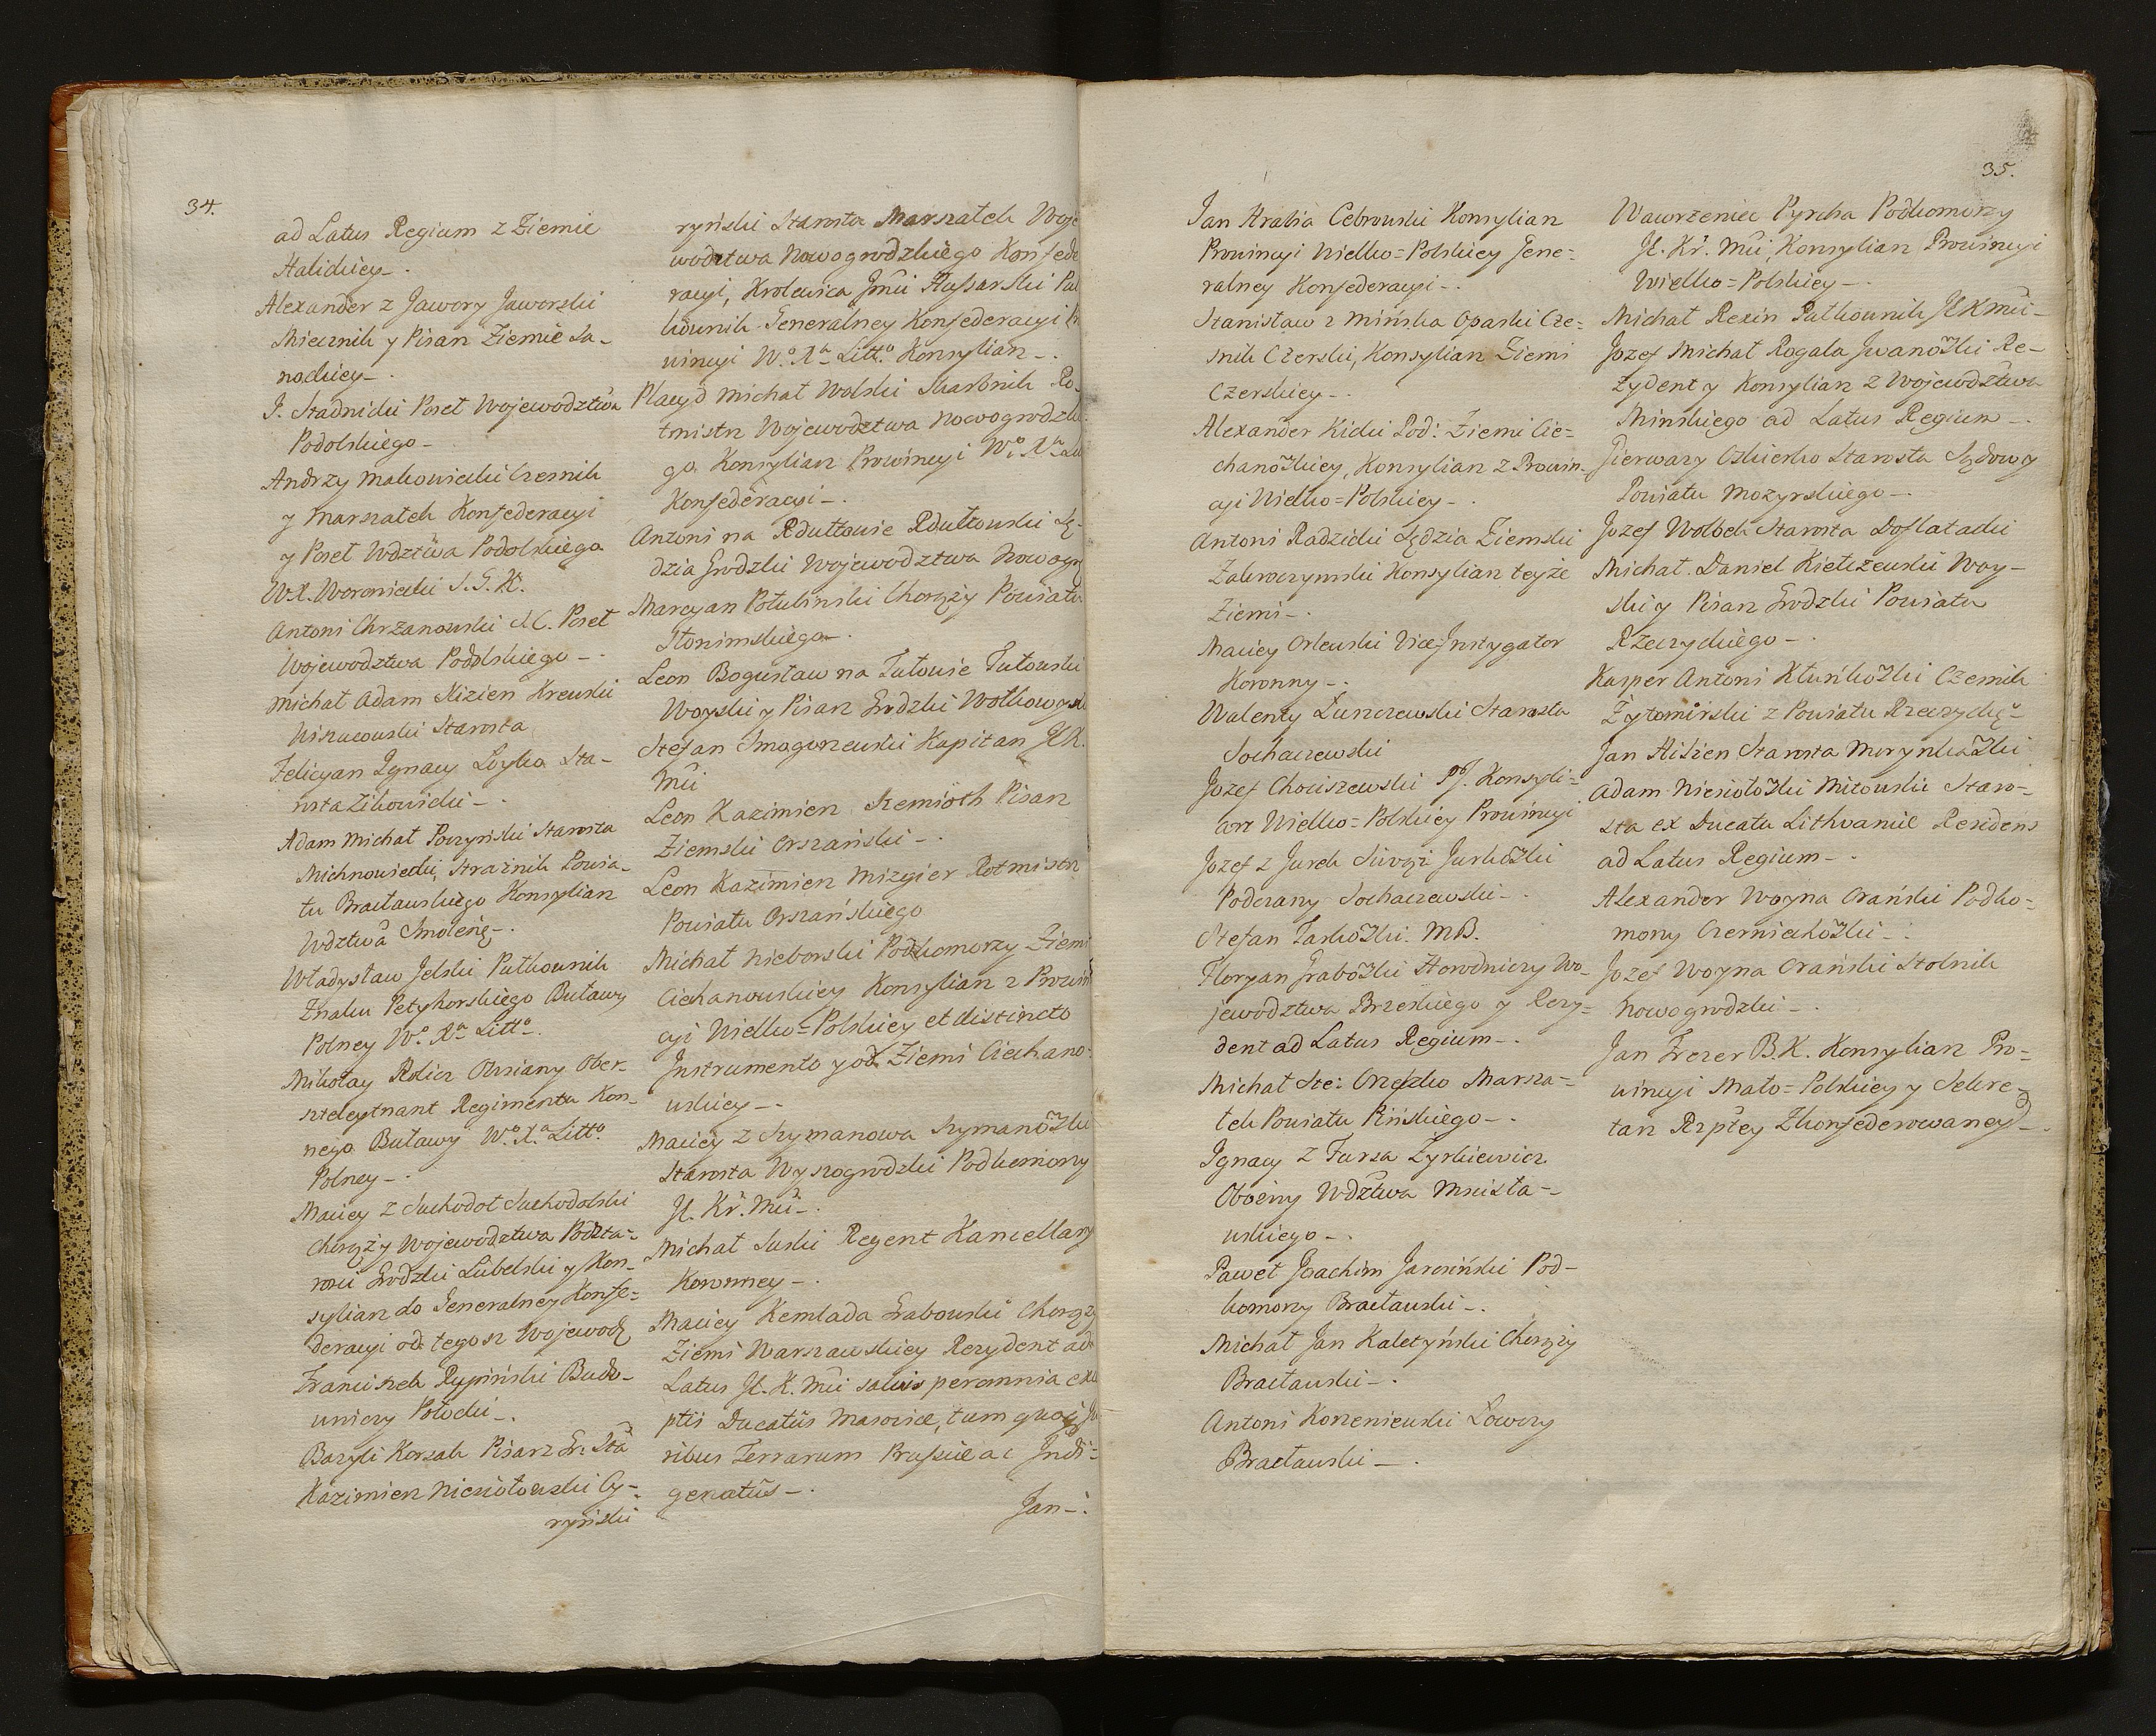 34.
ad Latus Regium z Ziemie
Halickiey-.
Alexander z Jawory Jaworski
Miecznik y Pisarz Ziemie Sa-
nockiey-.
J. Stadnicki Poseł Wojewodztwa
Podolskiego-
Andrzy Makowiecki Czesnik
y Marszałek Konfederacyi
y Poseł Wdztwa Podolskiego
W.X. Woroniecki S.G.K.
Antoni Chrzanowski S.C. Poseł
Wojewodztwa Podolskiego-.
Michał Adam Kizien Krewski
Wiszucowski Starosta
Felicyan Ignacy Loyko Sta-
rosta Zikowicki-.
Adam Michał Poczynski Starosta
Michnowiecki, Strażnik Powia-
tu Bracławskiego Konsylian
Wdztwa Smoleń-.
Władysław Jelski Pułkownik
Znaku Petyhorskiego Buławy
Polney W° Xa Litt°.
Mikołay Rdicz Olesiany Ober-
szteleytnant Regimentu Kon-
nego Buławy W° Xa Litt°
Polney-.
Maciey z Suchodoł Suchodolski
Chorąży Wojewodztwa Podsta-
rosci Grodzki Lubelski y Kon-
sylian do Generalney Konfe=
deracyi od tegosz Wojewodz
Franciszek Rypiński Budo-
wniczy Połocki-.
Bazyli Korsak Pisarz Gr: Sta
Kazimierz Niesiołowski Cy-
ryński
ryński Starosta Marszałek Woje
wodztwa Nowogrodzkiego Konfede
racyi, Krolewica Jmci Hussarski Puł
kownik Generalney Konfederacyi Pr
wincyi W° Xa Litt° Konsylian-.
Placyd Michał Wolski Skarbnik Ro-
tmistrz Wojewodztwa Nowogrodzki
go Konsylian Prowincyi W° Xa
Konfederacyi-.
Antoni na Rdułtowie Rdułtowski Sę-
dzia Grodzki Wojewodztwa Nowogr
Marcyan Połubinski Chorąży Powiatu
Słonimskiego-.
Leon Bogusław na Tułowie Tułowski
Woyski y Pisarz Grodzki Wołkowysk
Stefan Smogorzewski Kapitan JK.
Mci
Leon Kazimierz Szemioth Pisarz
Ziemski Orszański-.
Leon Kazimierz Mizgier Rotmistrz
Powiatu Orszańskiego
Michał Nieborski Podkomorzy Ziemi
Ciechanowskiey Konsylian z Prowin
cyi Wielko=Polskiey et distincto
Instrumento y od Ziemi Ciechano=
wskiey-.
Maciey z Szymanowa Szymanowski
Starosta Wyszogrodzki Podkomorzy
J. Kr. Mci-.
Michał Suski Regent Kancellary
Koronney-.
Maciey Kemlada Grabowski Chorąży
Ziemi Warszawskiey Rezydent ad
Latus J. K. Mci salvis perennia exce
ptis Ducatus Masoviæ, tum quoq; Ju
ribus Terrarum Prussiæ ac Indi=
genatûs-.
Jan-.
35.
Jan Hrabia Cetrowski Konsylian
Prowincyi Wielko=Polskiey Jene=
ralney Konfederacyi-.
Stanisław z Mińska Oparski Cze=
snik Czerski, Konsylian Ziemi
Czerskiey-.
Alexander Kicki Pod: Ziemi Cie=
chanowskiey, Konsylian z Prowin-
cyi Wielko=Polskiey-.
Antoni Radzicki Sędzia Ziemski
Zakroczymski Konsylian teyże
Ziemi-.
Maciey Orlewski Vice Instygator
Koronny-.
Walenty Łuszczewski Starosta
Sochaczewski
Jozef Chociszewski Konsyli=
arz Wielko=Polskiey Prowincyi
Jozef z Jurek Jurkowski
Podczaszy Sochaczewski-.
Stefan Jarkowski MB.
Floryan Grabowski Horodniczy Wo-
jewodztwa Brzeskiego y Rezy=
dent ad Latus Regium-.
Michał Ste: Orzeszko Marsza=
łek Powiatu Pińskiego-.
Ignacy z Fursa Zyrkiewicz
Oboźny Wdztwa Mścisła-
wskiego-.
Paweł Joachim Jarosiński Pod-
komorzy Bracławski-.
Michał Jan Kaletyński Chorąży
Bracławski-.
Antoni Korzeniewski Łowczy
Bracławski-.
Wawrzeniec Pyrcha Podkomorzy
J. Kr. Mci, Konsylian Prowincyi
Wielko=Polskiey-.
Michał Rexin Pułkownik JKMci-
Jozef Michał Rogala Jwanowski Re-
zydent y Konsylian z Wojewodztwa
Minskiego ad Latus Regium-.
Gierwazy Oskierko Starosta Sądowy
Powiatu Mozyrskiego-.
Jozef Wołbek Starosta Dosłatacki
Michał Daniel Kiełczewski Woy-
ski y Pisarz Grodzki Powiatu
Rzeczyckiego-.
Kasper Antoni Kłuńkowski Czesnik
Żytomirski z Powiatu Rzeczyckę-
Jan Hizien Starosta Morynkowski
Adam Niesiołowski Mitowski Staro-
sta ex Ducatu Lithvaniæ Residens
ad Latus Regium-.
Alexander Woyna Orański Podko=
morzy Czerniehowski-.
Jozef Woyna Orański Stolnik
Nowogrodzki-.
Jan Frezer B.K. Konsylian Pro=
wincyi Mało=Polskiey y Sekre=
tarz Rzptey Zkonfederowaney-.